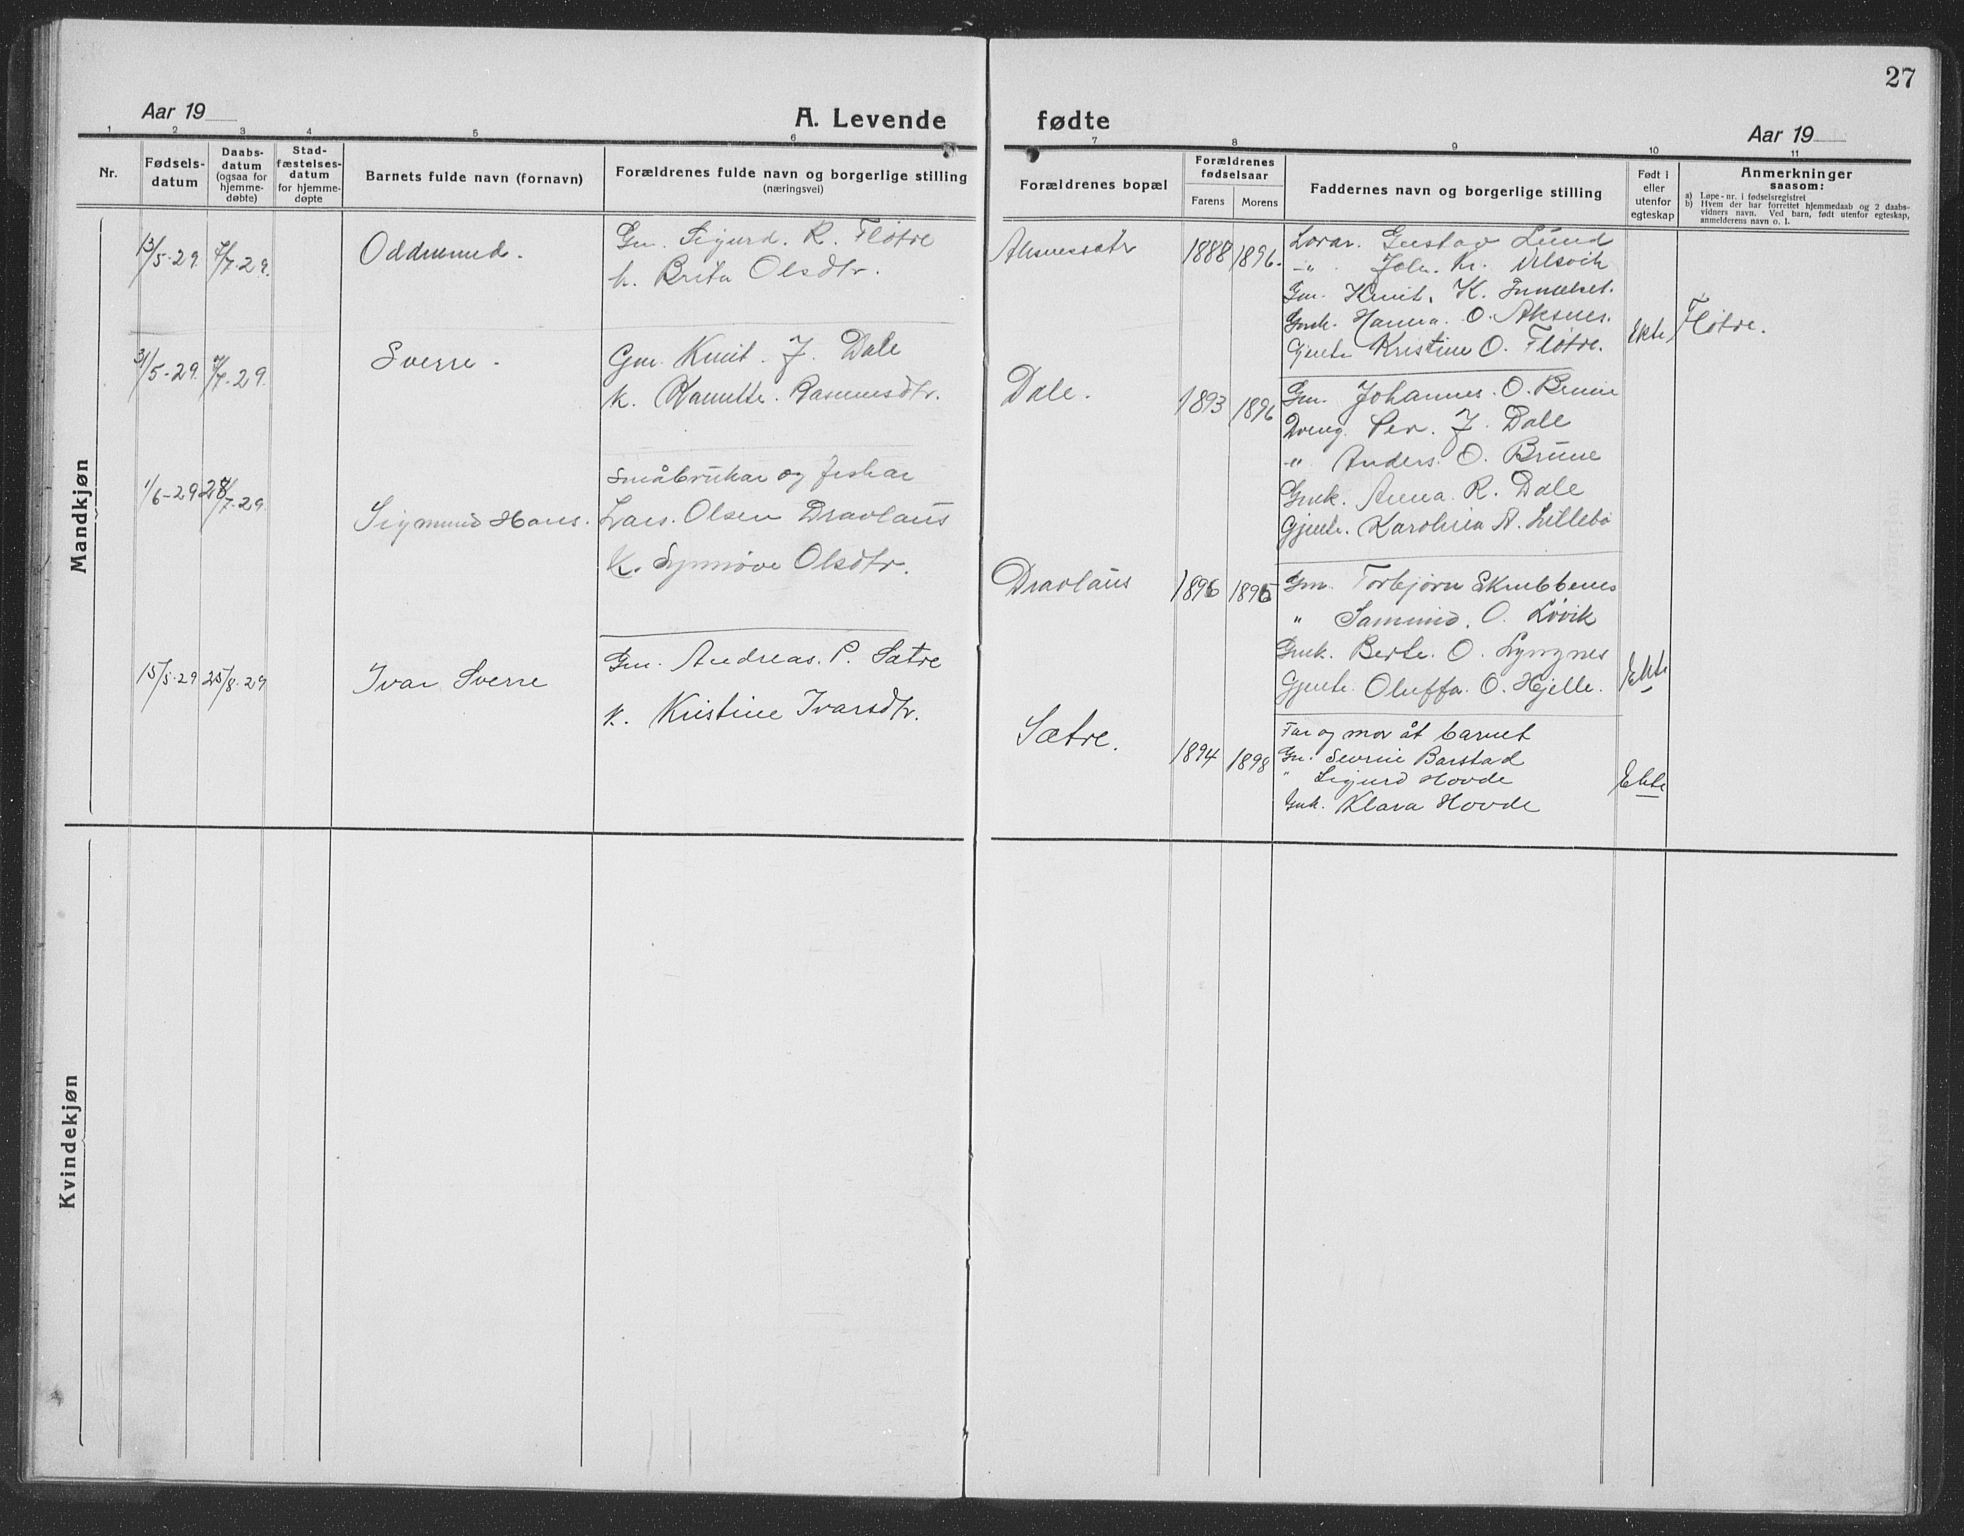 27
Aar 19
A. Levende fødte
Aar 19
1 2 3 4 5 6 7 8 9 10 11
Nr.
Fødsels-
datum
Daabs-
datum
(ogsaa for
hjemme-
døbte)
Stad-
fæstelses-
datum
for hjemme-
døpte
Barnets fulde navn (fornavn)
Forældrenes fulde navn og borgerlige stilling
(næringsvei)
Forældrenes bopæl
Forældrenes
fødselsaar
Farens Morens
Faddernes navn og borgerlige stilling
Født i
eller
utenfor
egteskap
Anmerkninger
saasom:
a) Løpe-nr. i fødselsregistret
b) Hvem der har forrettet hjemmedaab og 2 daabs-
vidners navn. Ved barn, født utenfor egteskap,
anmelderens navn o. l.
Mandkjøn
13/5-29 7/7-29. Oddmund.
Gm. Sigurd. R. Fløtre
k. Brita Olsdtr.
1888 1896.
Lærar. Gustav Lund
-"- Joh. Kr.
Gm. Knut. K.
Gmk. Hanna. O. Aksnes.
Gjente Kristine O. Fløtre.
Ekte
Fløtre.
31/5-29. 7/7-29. Sverre.
Gm. Knut. J. Dale
k. Rasmusdtr.
Dale.
1893 1896
Gm. Johannes. O. Brune
Dreng. Per. J. Dale
-"- Anders. O. Brune
Gmk. Anna. R. Dale
Gjente. Karolina A. Lillebø
1/6-29 28/7-29. Sigmund Hans.
Småbrukar og fiskar
Lars. Olsen Dravlaus
K. Synnøve Olsdtr.
Dravlaus
1896 1895
Gm. Torbjørn Skrubbenes
" O. Løvik
Gmk. Berte. O. Lyngnes
Gjente. Oluffa. O. Hjelle.
Ekte
15/5-29 25/8-29 Ivar Sverre
Gm. Andreas. P. Sætre
k. Kristine Ivarsdtr.
Sætre.
1894 1898
Far og mor åt barnet
Gm. Sevrin Barstad
" Sigurd Hovde
Gmk. Klara Hovde
Ekte
Kvindekjøn